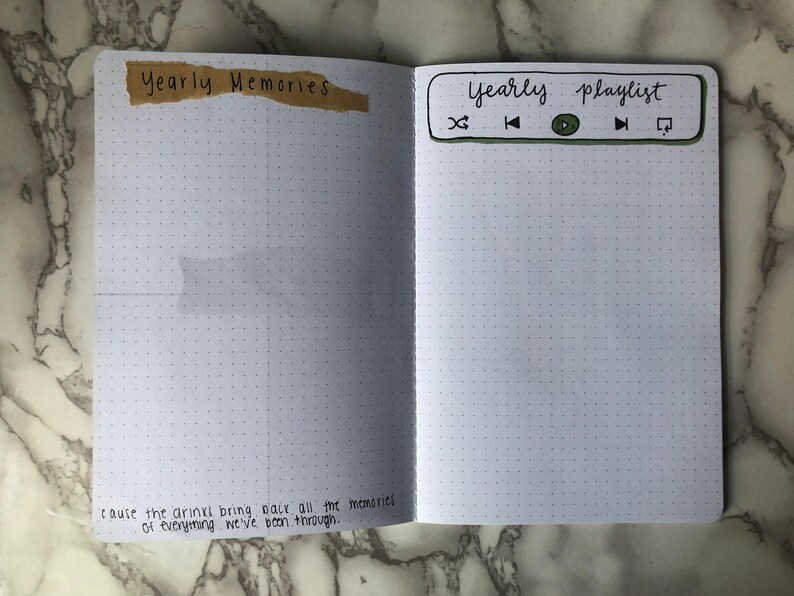 Yearly Memories
'cause the drinks bring back all the memories
of everything we've been through.
Yearly playlist